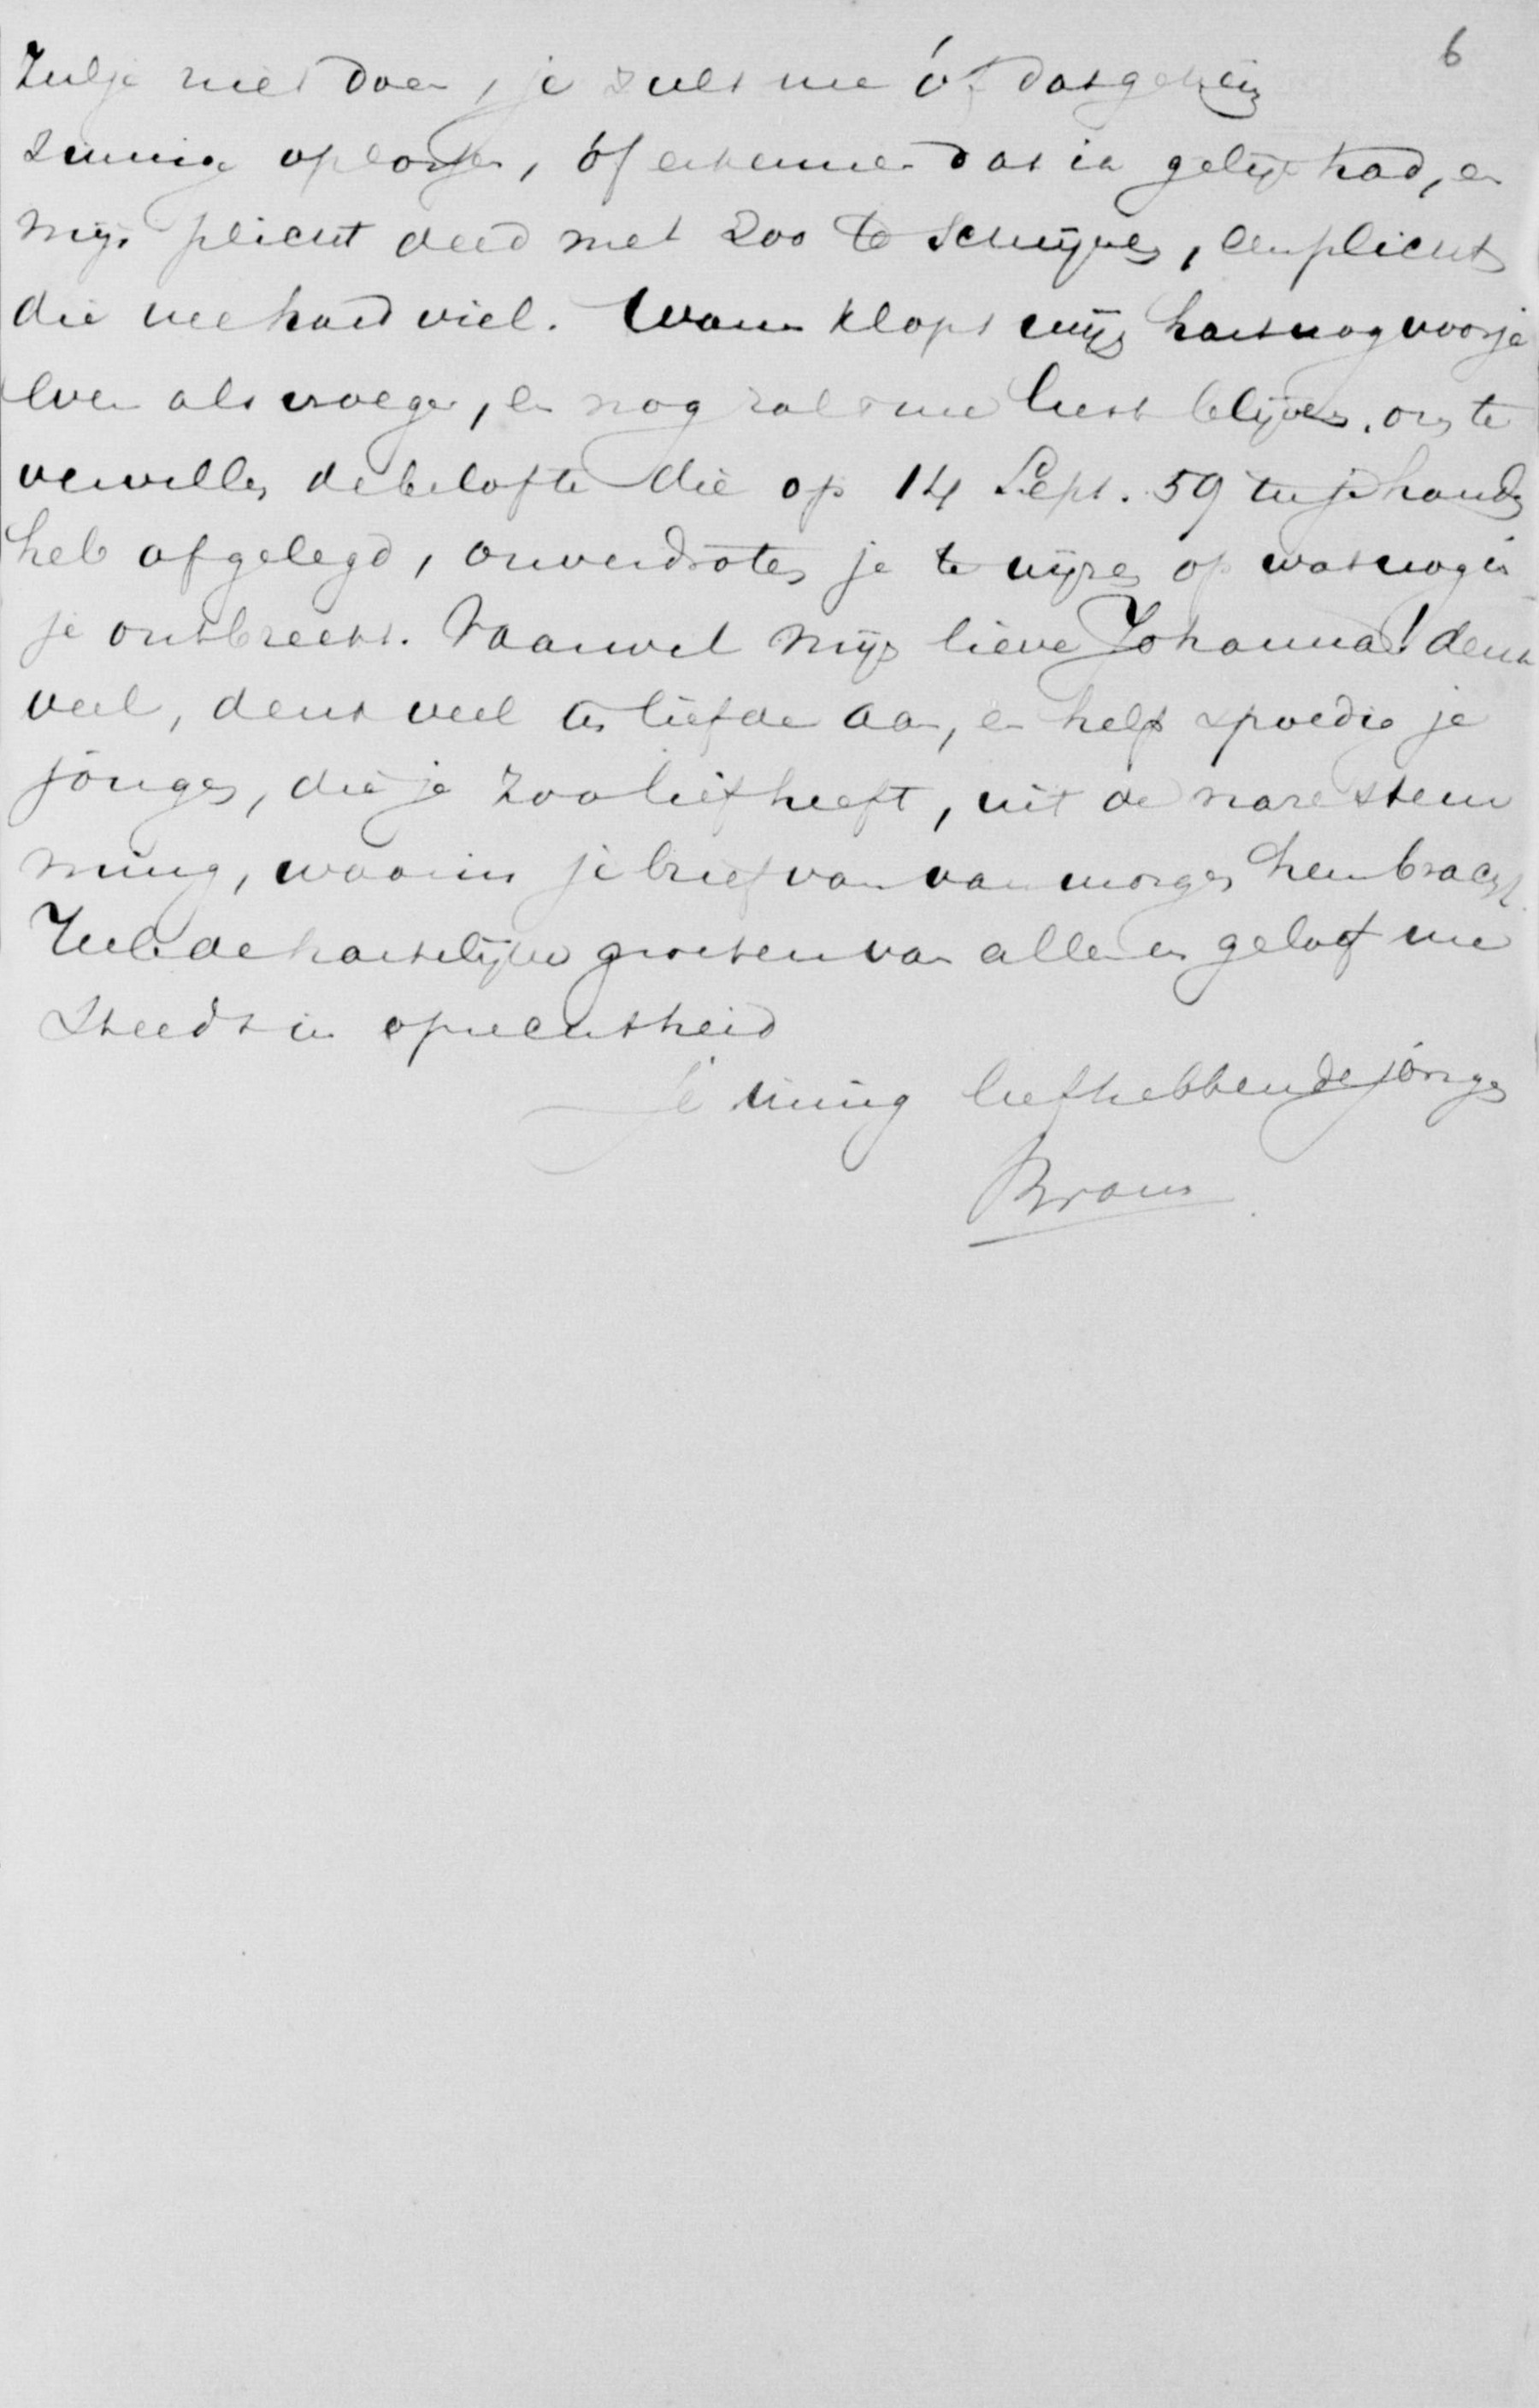 6
Zul je niet doen, je zult me óf dat geheim
zinnig oplossen, óf erkennen dat ik gelijk had, en
mijn plicht deed met zoo te schrijven, een plicht
die me hard viel. Warm klopt mijn hart nog voor je
even als vroeger, en nog zal 't me lust blijven, om te
vervullen de belofte die op 14 Sept. 59 in je handen
heb afgelegd, onverdroten je te wijzen op wat nog in
je ontbreekt. Vaarwel mijn lieve Johanna! denk
veel, denk veel in liefde aan, en help spoedig je
jongen, die je zoo lief heeft, uit de nare stem
ming, waarin je brief van van morgen hem bracht.
Heb de hartelijke groeten van allen en geloof me
steeds in oprechtheid
Je innig liefhebbende jongen
Bram